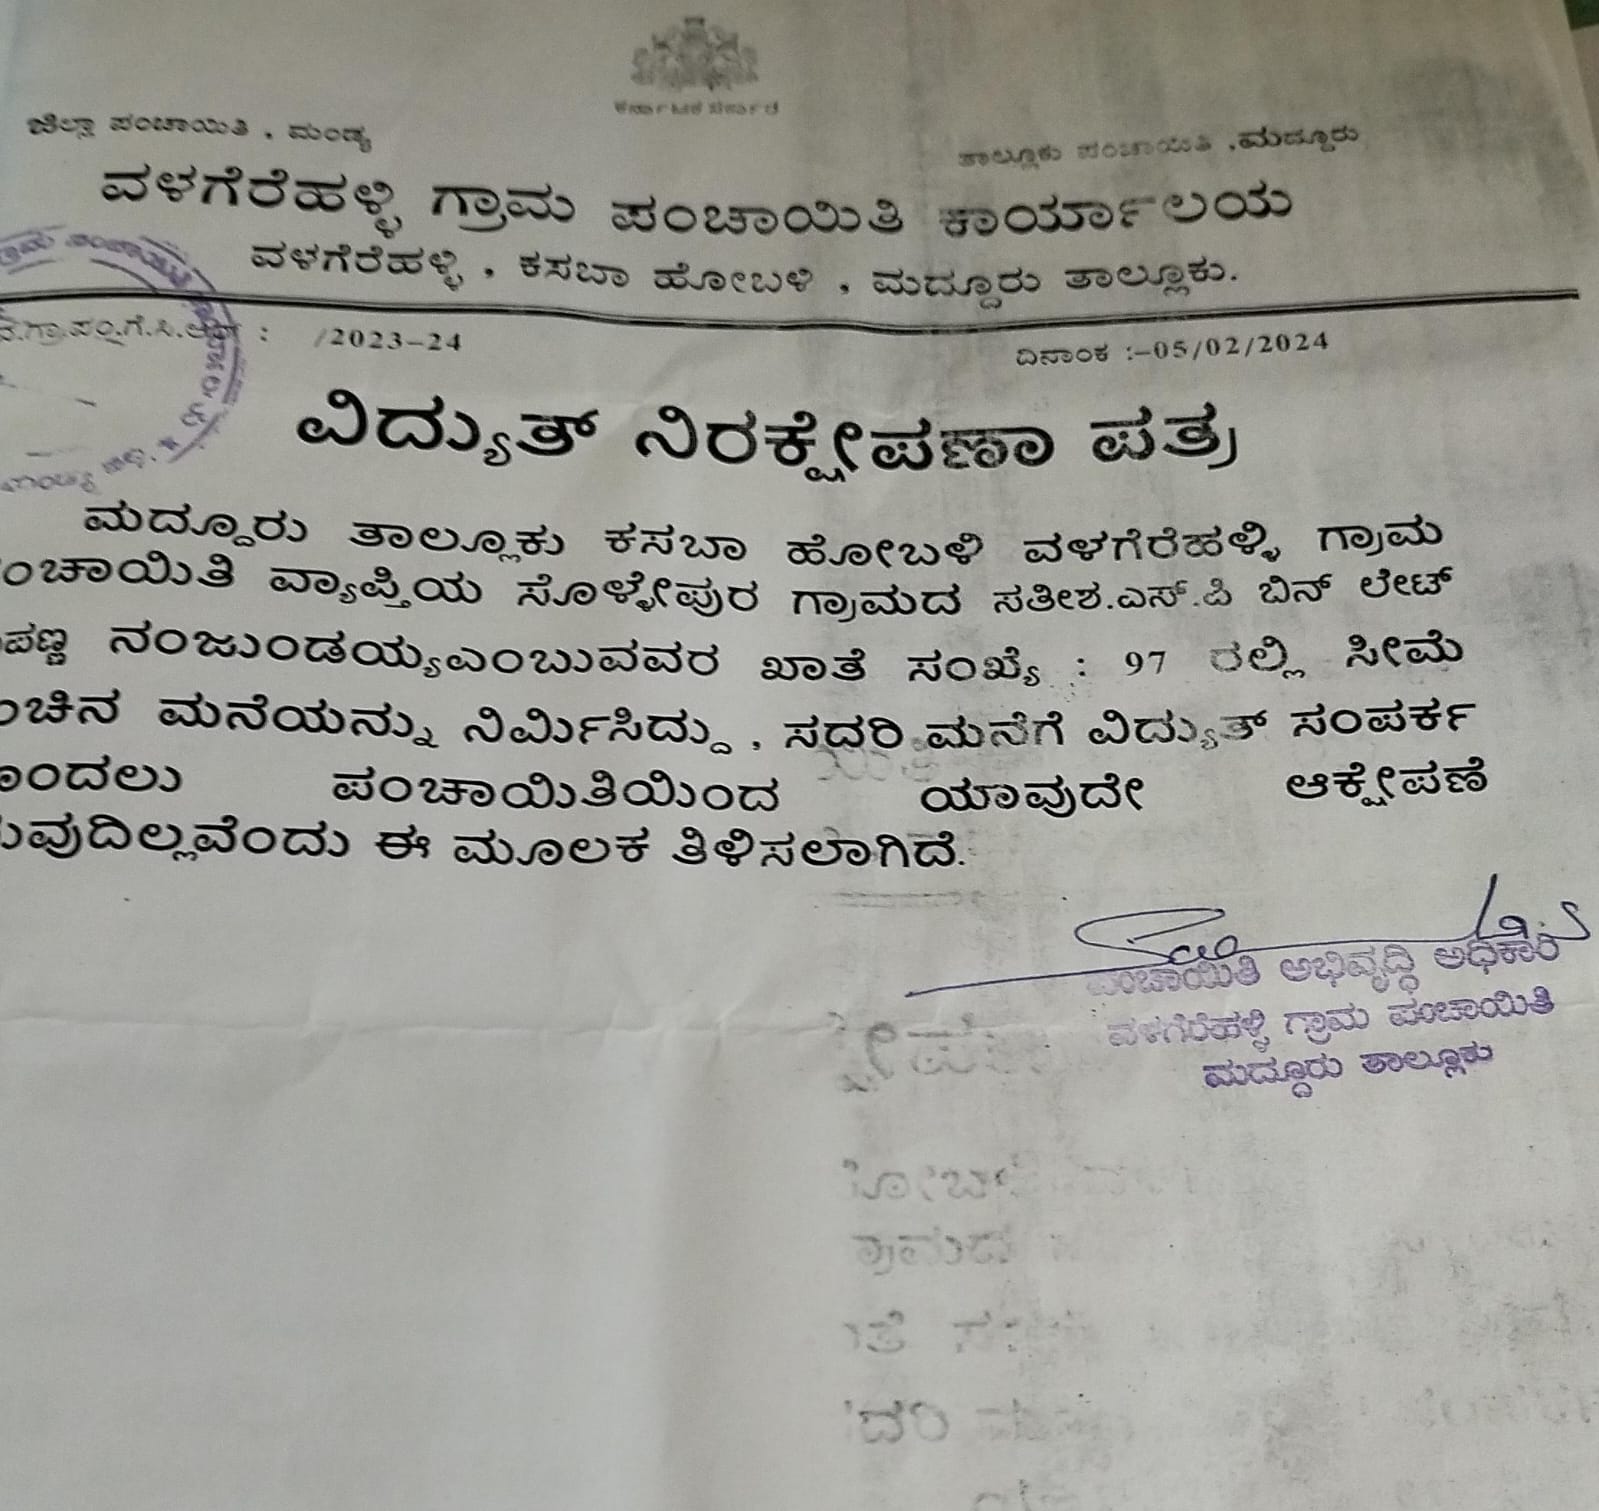 ಕರ್ನಾಟಕ ಸರ್ಕಾರ
ಜಿಲ್ಲಾ ಪಂಚಾಯಿತಿ , ಮಂಡ್ಯ
ತಾಲ್ಲೂಕು ಪಂಚಾಯಿತಿ ,ಮದ್ದೂರು
ವಳಗೆರೆಹಳ್ಳಿ ಗ್ರಾಮ ಪಂಚಾಯಿತಿ ಕಾರ್ಯಾಲಯ
ವಳಗೆರೆಹಳ್ಳಿ , ಕಸಬಾ ಹೋಬಳಿ , ಮದ್ದೂರು ತಾಲ್ಲೂಕು.
/2023-24
ದಿನಾಂಕ :-05/02/2024
ವಿದ್ಯುತ್ ನಿರಕ್ಷೇಪಣಾ ಪತ್ರ
ಮದ್ದೂರು ತಾಲ್ಲೂಕು ಕಸಬಾ ಹೋಬಳಿ ವಳಗೆರೆಹಳ್ಳಿ ಗ್ರಾಮ
ಂಚಾಯಿತಿ ವ್ಯಾಪ್ತಿಯ ಸೊಳ್ಳೇಪುರ ಗ್ರಾಮದ ಸತೀಶ.ಎಸ್.ಪಿ ಬಿನ್ ಲೇಟ್
ಪಣ್ಣ ನಂಜುಂಡಯ್ಯಎಂಬುವವರ ಖಾತೆ ಸಂಖ್ಯೆ : 97 ರಲ್ಲಿ ಸೀಮೆ
ಂಚಿನ ಮನೆಯನ್ನು ನಿರ್ಮಿಸಿದ್ದು , ಸದರಿ ಮನೆಗೆ ವಿದ್ಯುತ್ ಸಂಪರ್ಕ
ೊಂದಲು ಪಂಚಾಯಿತಿಯಿಂದ ಯಾವುದೇ ಆಕ್ಷೇಪಣೆ
ುವುದಿಲ್ಲವೆಂದು ಈ ಮೂಲಕ ತಿಳಿಸಲಾಗಿದೆ.
ಪಂಚಾಯಿತಿ ಅಭಿವೃದ್ಧಿ ಅಧಿಕಾರಿ
ವಳಗೆರೆಹಳ್ಳಿ ಗ್ರಾಮ ಪಂಚಾಯಿತಿ
ಮದ್ದೂರು ತಾಲ್ಲೂಕು